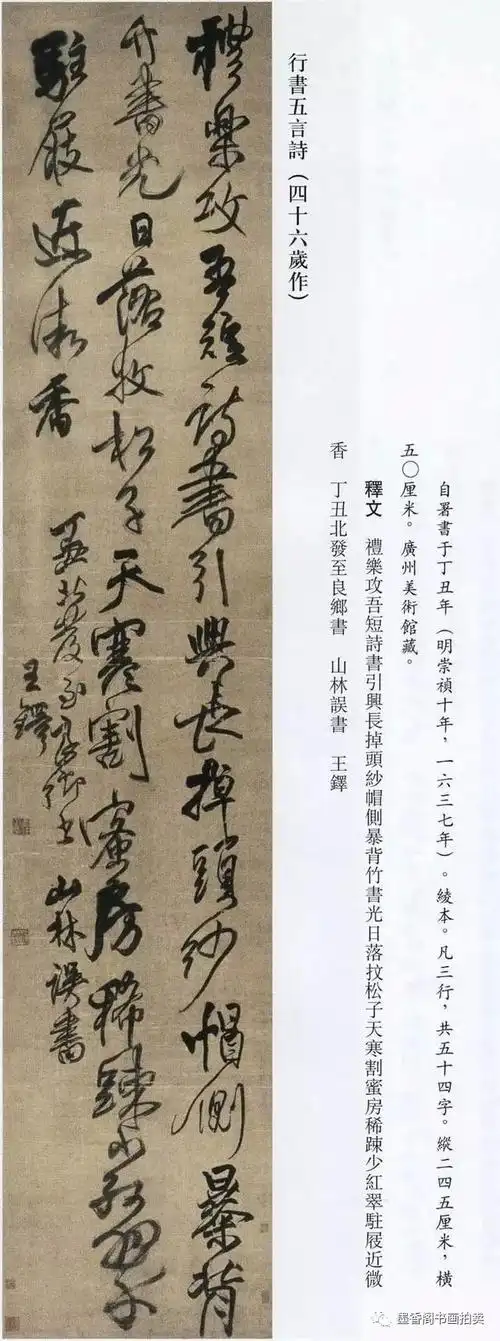 行書五言詩（四十六歲作）
自署書于丁丑年（明崇禎十年，一六三七年）。綾本。凡三行，共五十四字。縱二四五厘米，橫
五〇厘米。廣州美術館藏。
釋文　禮樂攻吾短詩書引興長掉頭紗帽側暴背竹書光日落扙松子天寒割蜜房稀踈少紅翠駐屐近微
香　丁丑北發至良鄉書　山林誤書　王鐸
禮樂攻吾短詩書引興長掉頭紗帽側暴背
竹書光日落扙松子天寒割蜜房稀踈少紅翠
駐屐近微香　丁丑北發至良鄉書　山林誤書
王鐸
墨香阁书画拍卖